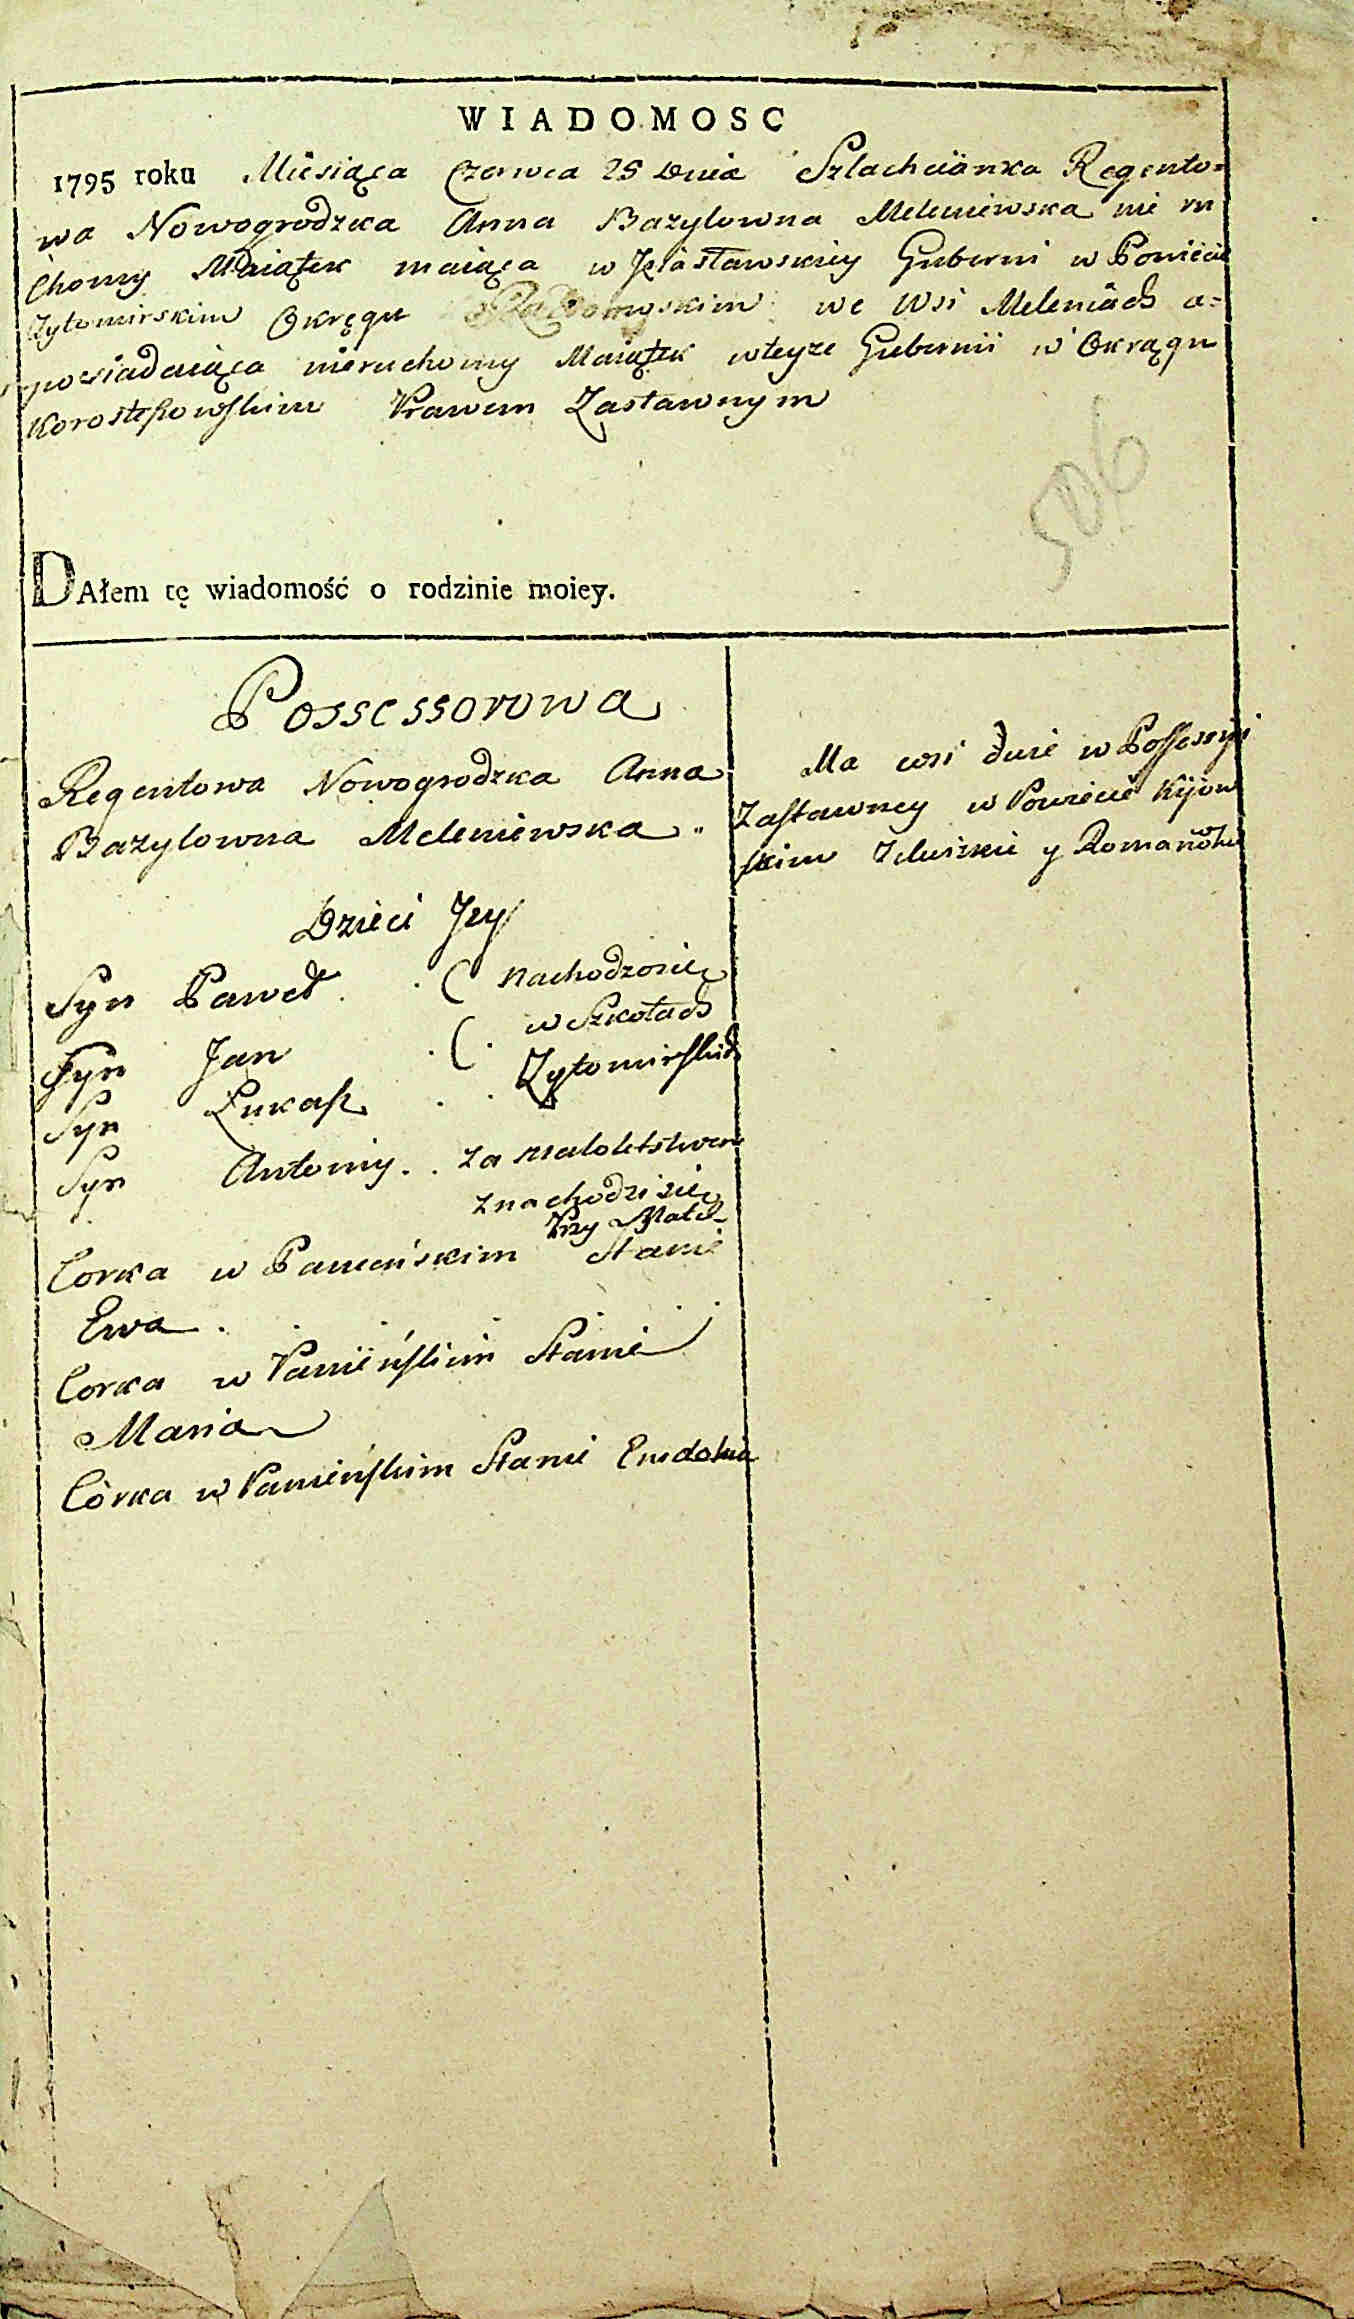 WIADOMOSC
1795 roku Miesiąca Czerwca 25 Dnia Szlachcianka Regento=
wa Nowogrodzka Anna Bazylowna Meleniewska nie ru
Chomy Maiątek maiąca w Iziasławskiey Guberni w Powiecie
Zytomirskim Okręgu Radomyskim we Wsi Meleniach a=
posiadaiąca nieruchomy Maiątek wteyze Gubernii w Okrągu
Korosteszowskim Prawem Zastawnym
506
DAłem tę wiadomość o rodzinie moiey.
Possessorowa
Regentowa Nowogrodzka Anna
Bazylowna Meleniewska
Dzieci Jey
Syn Paweł . . ( nachodzosię
Syn Jan . ( . w Szkołach
Syn Łukasz . . Zytomirskich
Syn Antoniy . . Za maloletstwem
znachodzi się
Przy Matce
Corka w Panieńskim Stanie
Ewa .
Corka w Panieńskim Stanie
Maria
Córka w Panieńskim Stanie Eudokia
Ma wsi dwie w Possessyi
Zastawney w Powiecie Kijow
skim y Romanowke